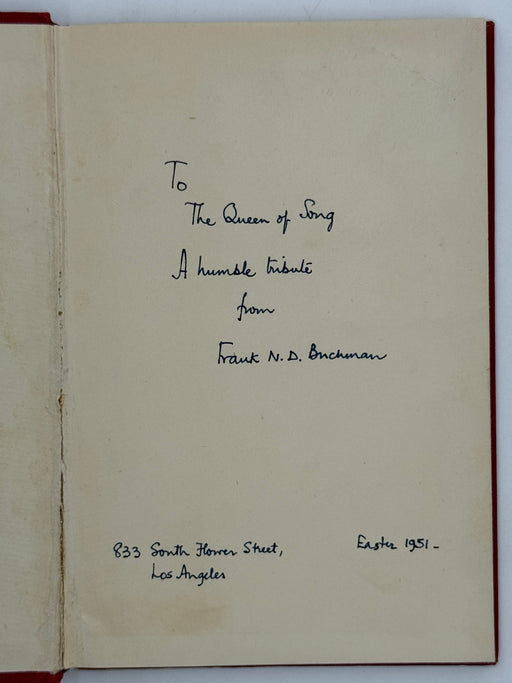 To
The Queen of Song
A humble tribute
from
Frank N. D. Buchman
833 South Flower Street,
Los Angeles
Easter 1951-